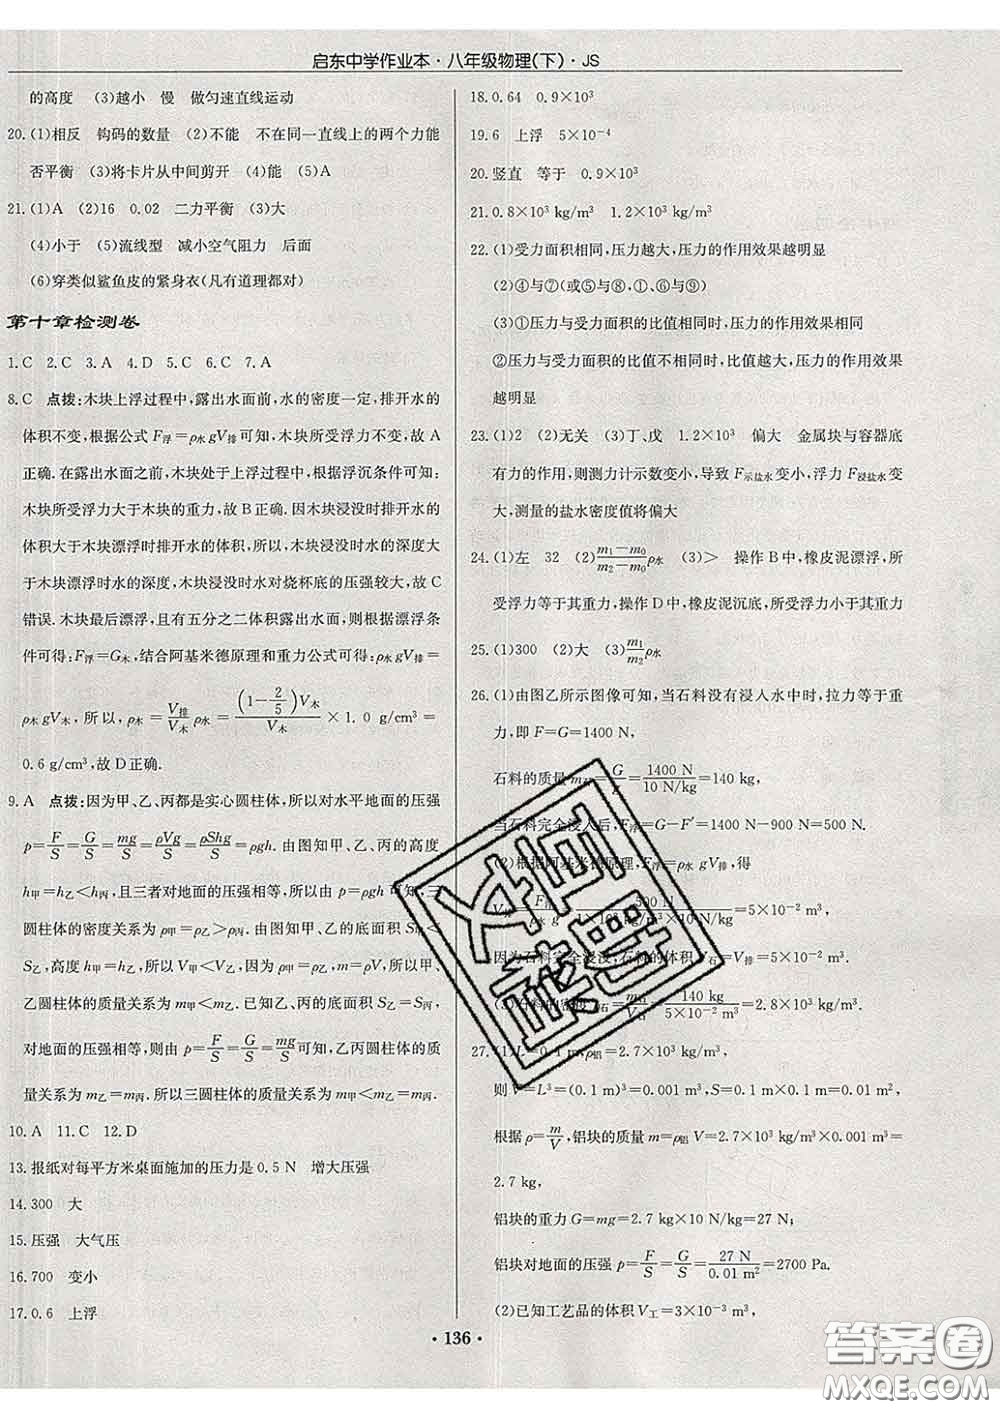 启东中学作业本·八年级物理(下)·JS
的高度 (3)越小 慢 做匀速直线运动
20.(1)相反 钩码的数量 (2)不能 不在同一直线上的两个力能
否平衡 (3)将卡片从中间剪开 (4)能 (5)A
21.(1)A (2)16 0.02 二力平衡 (3)大
(4)小于 (5)流线型 减小空气阻力 后面
(6)穿类似鲨鱼皮的紧身衣(凡有道理都对)
第十章检测卷
1.C 2.C 3.A 4.D 5.C 6.C 7.A
8.C 点拨:木块上浮过程中,露出水面前,水的密度一定,排开水的
体积不变,根据公式 F浮=ρ水 gV排可知,木块所受浮力不变,故 A
正确.在露出水面之前,木块处于上浮过程中,根据浮沉条件可知:
木块所受浮力大于木块的重力,故 B 正确.因木块浸没时排开水的
体积大于木块漂浮时排开水的体积,所以,木块浸没时水的深度大
于木块漂浮时水的深度,木块浸没时水对烧杯底的压强较大,故 C
错误.木块最后漂浮,且有五分之二体积露出水面,则根据漂浮条
件可得:F浮=G木,结合阿基米德原理和重力公式可得:ρ水 gV排=
ρ木 gV木,所以,ρ木=V排/V木 ρ水=(1-2/5)V木/V木×1.0 g/cm³=
0.6 g/cm³,故 D 正确.
9.A 点拨:因为甲、乙、丙都是实心圆柱体,所以对水平地面的压强
p=F/S=G/S=mg/S=ρVg/S=ρShg/S=ρgh.由图知甲、乙、丙的高度
h甲=h乙<h丙,且三者对地面的压强相等,所以由 p=ρgh 可知,三
圆柱体的密度关系为 ρ甲=ρ乙>ρ丙.由图知甲、乙的底面积 S甲<
S乙,高度 h甲=h乙,所以 V甲<V乙,因为 ρ甲=ρ乙,m=ρV,所以甲、
乙圆柱体的质量关系为 m甲<m乙.已知乙、丙的底面积 S乙=S丙,
对地面的压强相等,则由 p=F/S=G/S=mg/S可知,乙丙圆柱体的质
量关系为 m乙=m丙.所以三圆柱体的质量关系为 m甲<m乙=m丙.
10.A 11.C 12.D
13.报纸对每平方米桌面施加的压力是 0.5 N 增大压强
14.300 大
15.压强 大气压
16.700 变小
17.0.6 上浮
18.0.64 0.9×10³
19.6 上浮 5×10⁻⁴
20.竖直 等于 0.9×10³
21.0.8×10³ kg/m³ 1.2×10³ kg/m³
22.(1)受力面积相同,压力越大,压力的作用效果越明显
(2)④与⑦(或⑤与⑧,①、⑥与⑨)
(3)①压力与受力面积的比值相同时,压力的作用效果相同
②压力与受力面积的比值不相同时,比值越大,压力的作用效果
越明显
23.(1)2 (2)无关 (3)丁、戊 1.2×10³ 偏大 金属块与容器底
有力的作用,则测力计示数变小,导致 F示盐水变小,浮力 F浸盐水变
大,测量的盐水密度值将偏大
24.(1)左 32 (2)(m1-m0)/(m2-m0)ρ水 (3)> 操作 B 中,橡皮泥漂浮,所
受浮力等于其重力,操作 D 中,橡皮泥沉底,所受浮力小于其重力
25.(1)300 (2)大 (3)m1/m2 ρ水
26.(1)由图乙所示图像可知,当石料没有浸入水中时,拉力等于重
力,即 F=G=1400 N,
石料的质量 m石=G/g=1400 N/10 N/kg=140 kg,
当石料完全浸入后,F浮=G-F′=1400 N-900 N=500 N.
(2)根据阿基米德原理,F浮=ρ水 gV排,得
V排=F浮/ρ水 g=500 N/1×10³ kg/m³×10 N/kg=5×10⁻² m³,
因为石料完全浸没,石料的体积 V石=V排=5×10⁻² m³.
(3)石料的密度 ρ石=m石/V石=140 kg/5×10⁻² m³=2.8×10³ kg/m³.
27.(1)L=0.1 m,ρ铝=2.7×10³ kg/m³,
则 V=L³=(0.1 m)³=0.001 m³,S=0.1 m×0.1 m=0.01 m²,
根据 ρ=m/V,铝块的质量 m=ρ铝 V=2.7×10³ kg/m³×0.001 m³=
2.7 kg,
铝块的重力 G=mg=2.7 kg×10 N/kg=27 N;
铝块对地面的压强 p=F/S=G/S=27 N/0.01 m²=2700 Pa.
(2)已知工艺品的体积 V工=3×10⁻³ m³,
·136·
答案圈
MXQE.COM